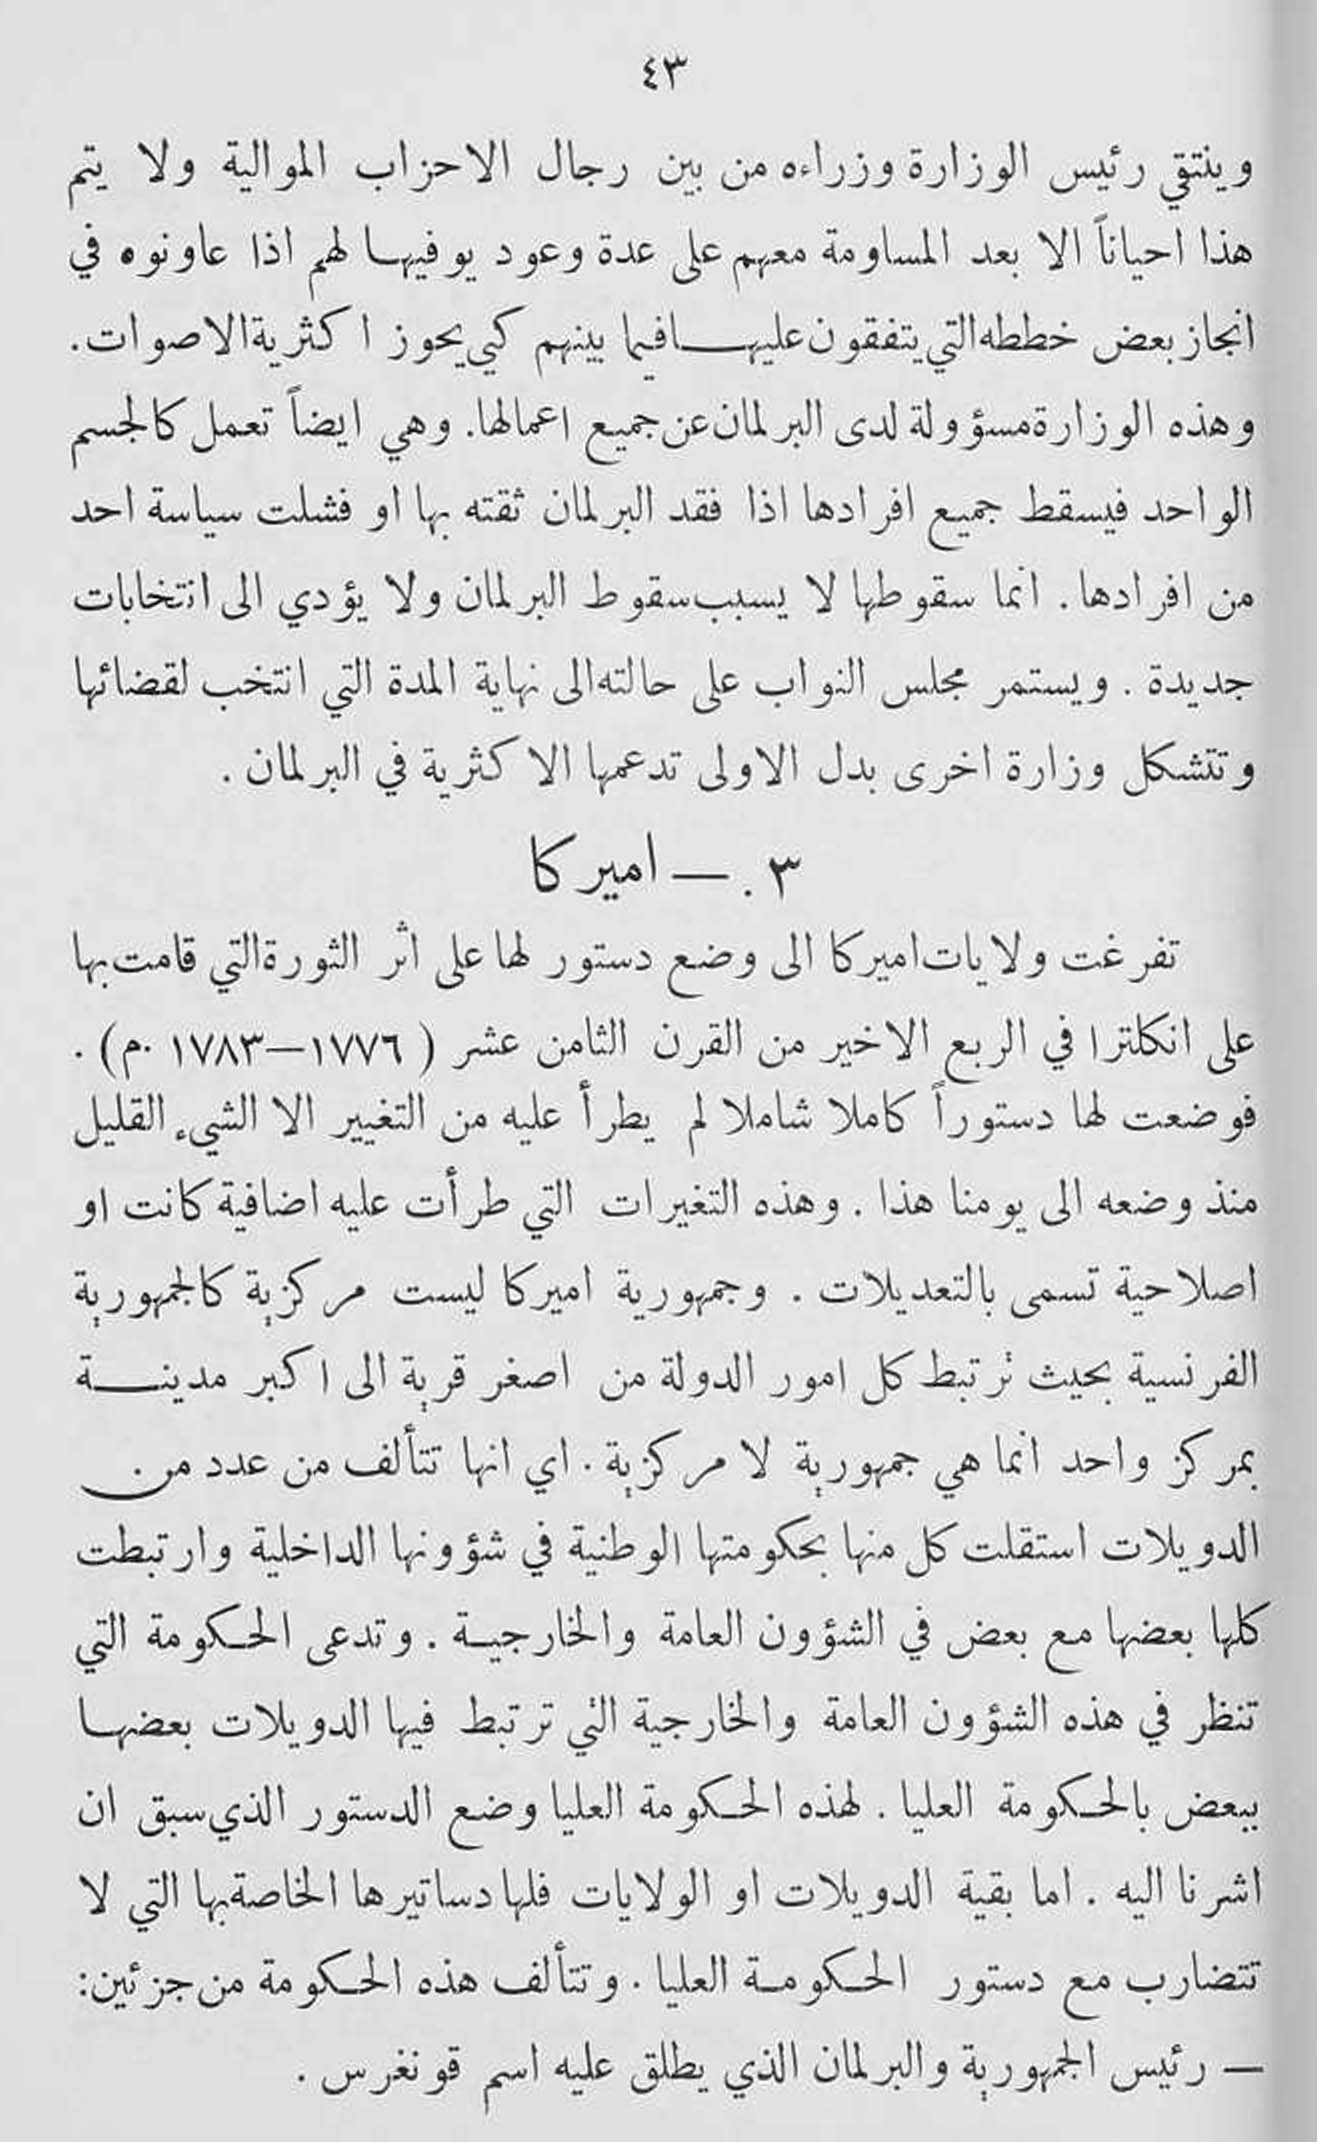 ٤٣
وينتقي رئيس الوزارة وزراءه من بين رجال الاحزاب الموالية ولا يتم
هذا احياناً الا بعد المساومة معهم على عدة وعود يوفيها لهم اذا عاونوه في
انجاز بعض خططه التي يتفقون عليها فيما بينهم كي يحوز اكثرية الاصوات.
وهذه الوزارة مسؤولة لدى البرلمان عن جميع اعمالها. وهي ايضاً تعمل كالجسم
الواحد فيسقط جميع افرادها اذا فقد البرلمان ثقته بها او فشلت سياسة احد
من افرادها. انما سقوطها لا يسبب سقوط البرلمان ولا يؤدي الى انتخابات
جديدة. ويستمر مجلس النواب على حالته الى نهاية المدة التي انتخب لقضائها
وتتشكل وزارة اخرى بدل الاولى تدعمها الاكثرية في البرلمان.
٣. — اميركا
تفرغت ولايات اميركا الى وضع دستور لها على اثر الثورة التي قامت بها
على انكلترا في الربع الاخير من القرن الثامن عشر (١٧٧٦—١٧٨٣ م.).
فوضعت لها دستوراً كاملا شاملا لم يطرأ عليه من التغيير الا الشيء القليل
منذ وضعه الى يومنا هذا. وهذه التغيرات التي طرأت عليه اضافية كانت او
اصلاحية تسمى بالتعديلات. وجمهورية اميركا ليست مركزية كالجمهورية
الفرنسية بحيث ترتبط كل امور الدولة من اصغر قرية الى اكبر مدينة
بمركز واحد انما هي جمهورية لا مركزية. اي انها تتألف من عدد من
الدويلات استقلت كل منها بحكومتها الوطنية في شؤونها الداخلية وارتبطت
كلها بعضها مع بعض في الشؤون العامة والخارجية. وتدعى الحكومة التي
تنظر في هذه الشؤون العامة والخارجية التي ترتبط فيها الدويلات بعضها
ببعض بالحكومة العليا. لهذه الحكومة العليا وضع الدستور الذي سبق ان
اشرنا اليه. اما بقية الدويلات او الولايات فلها دساتيرها الخاصة بها التي لا
تتضارب مع دستور الحكومة العليا. وتتألف هذه الحكومة من جزئين:
— رئيس الجمهورية والبرلمان الذي يطلق عليه اسم قونغرس.